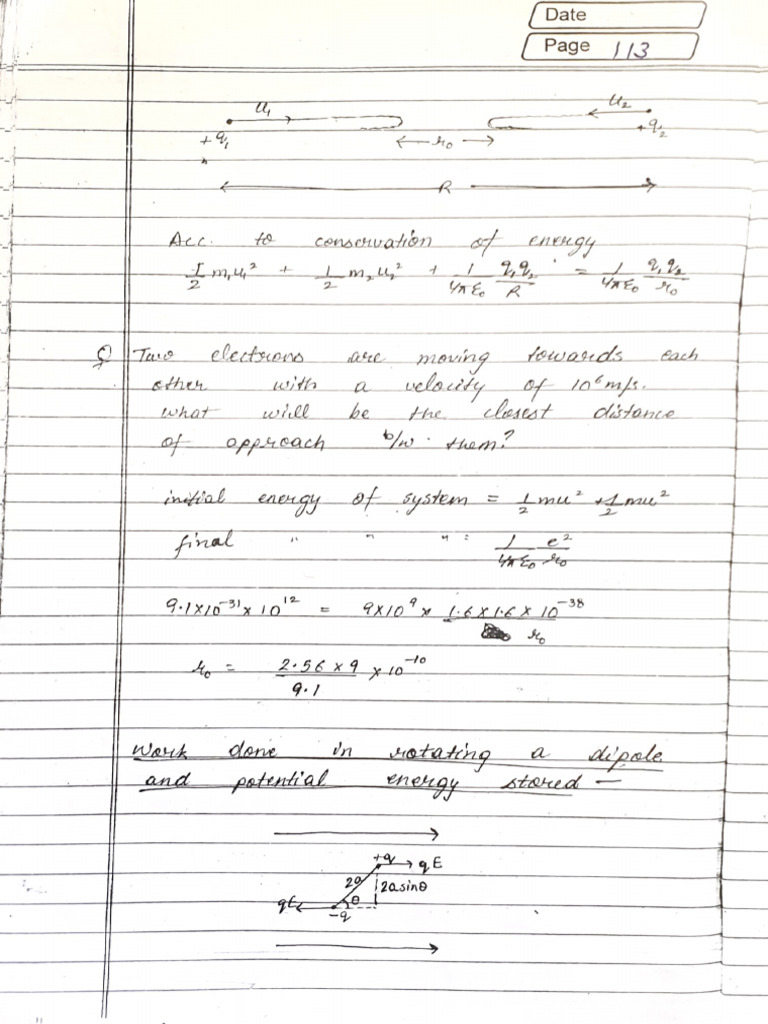 Date
Page 113
u₁ u₂
+q₁ r₀ +q₂
R
Acc. to conservation of energy
1/2 m₁u₁² + 1/2 m₂u₂² + 1/4πε₀ q₁q₂/R = 1/4πε₀ q₁q₂/r₀
Q Two electrons are moving towards each
other with a velocity of 10⁶ m/s.
what will be the closest distance
of approach b/w them?
initial energy of system = 1/2 mu² + 1/2 mu²
final " " " = 1/4πε₀ e²/r₀
9.1×10⁻³¹ × 10¹² = 9×10⁹ × 1.6×1.6×10⁻³⁸/r₀
r₀ = 2.56 × 9/9.1 × 10⁻¹⁰
Work done in rotating a dipole
and potential energy stored —
+q qE
2a 2a sinθ
qE θ
-q